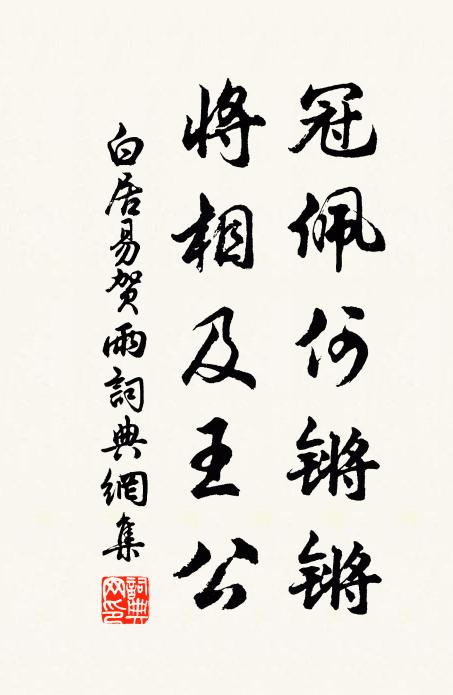 冠佩何锵锵
将相及王公
白居易贺雨詞典網集
詞典网印